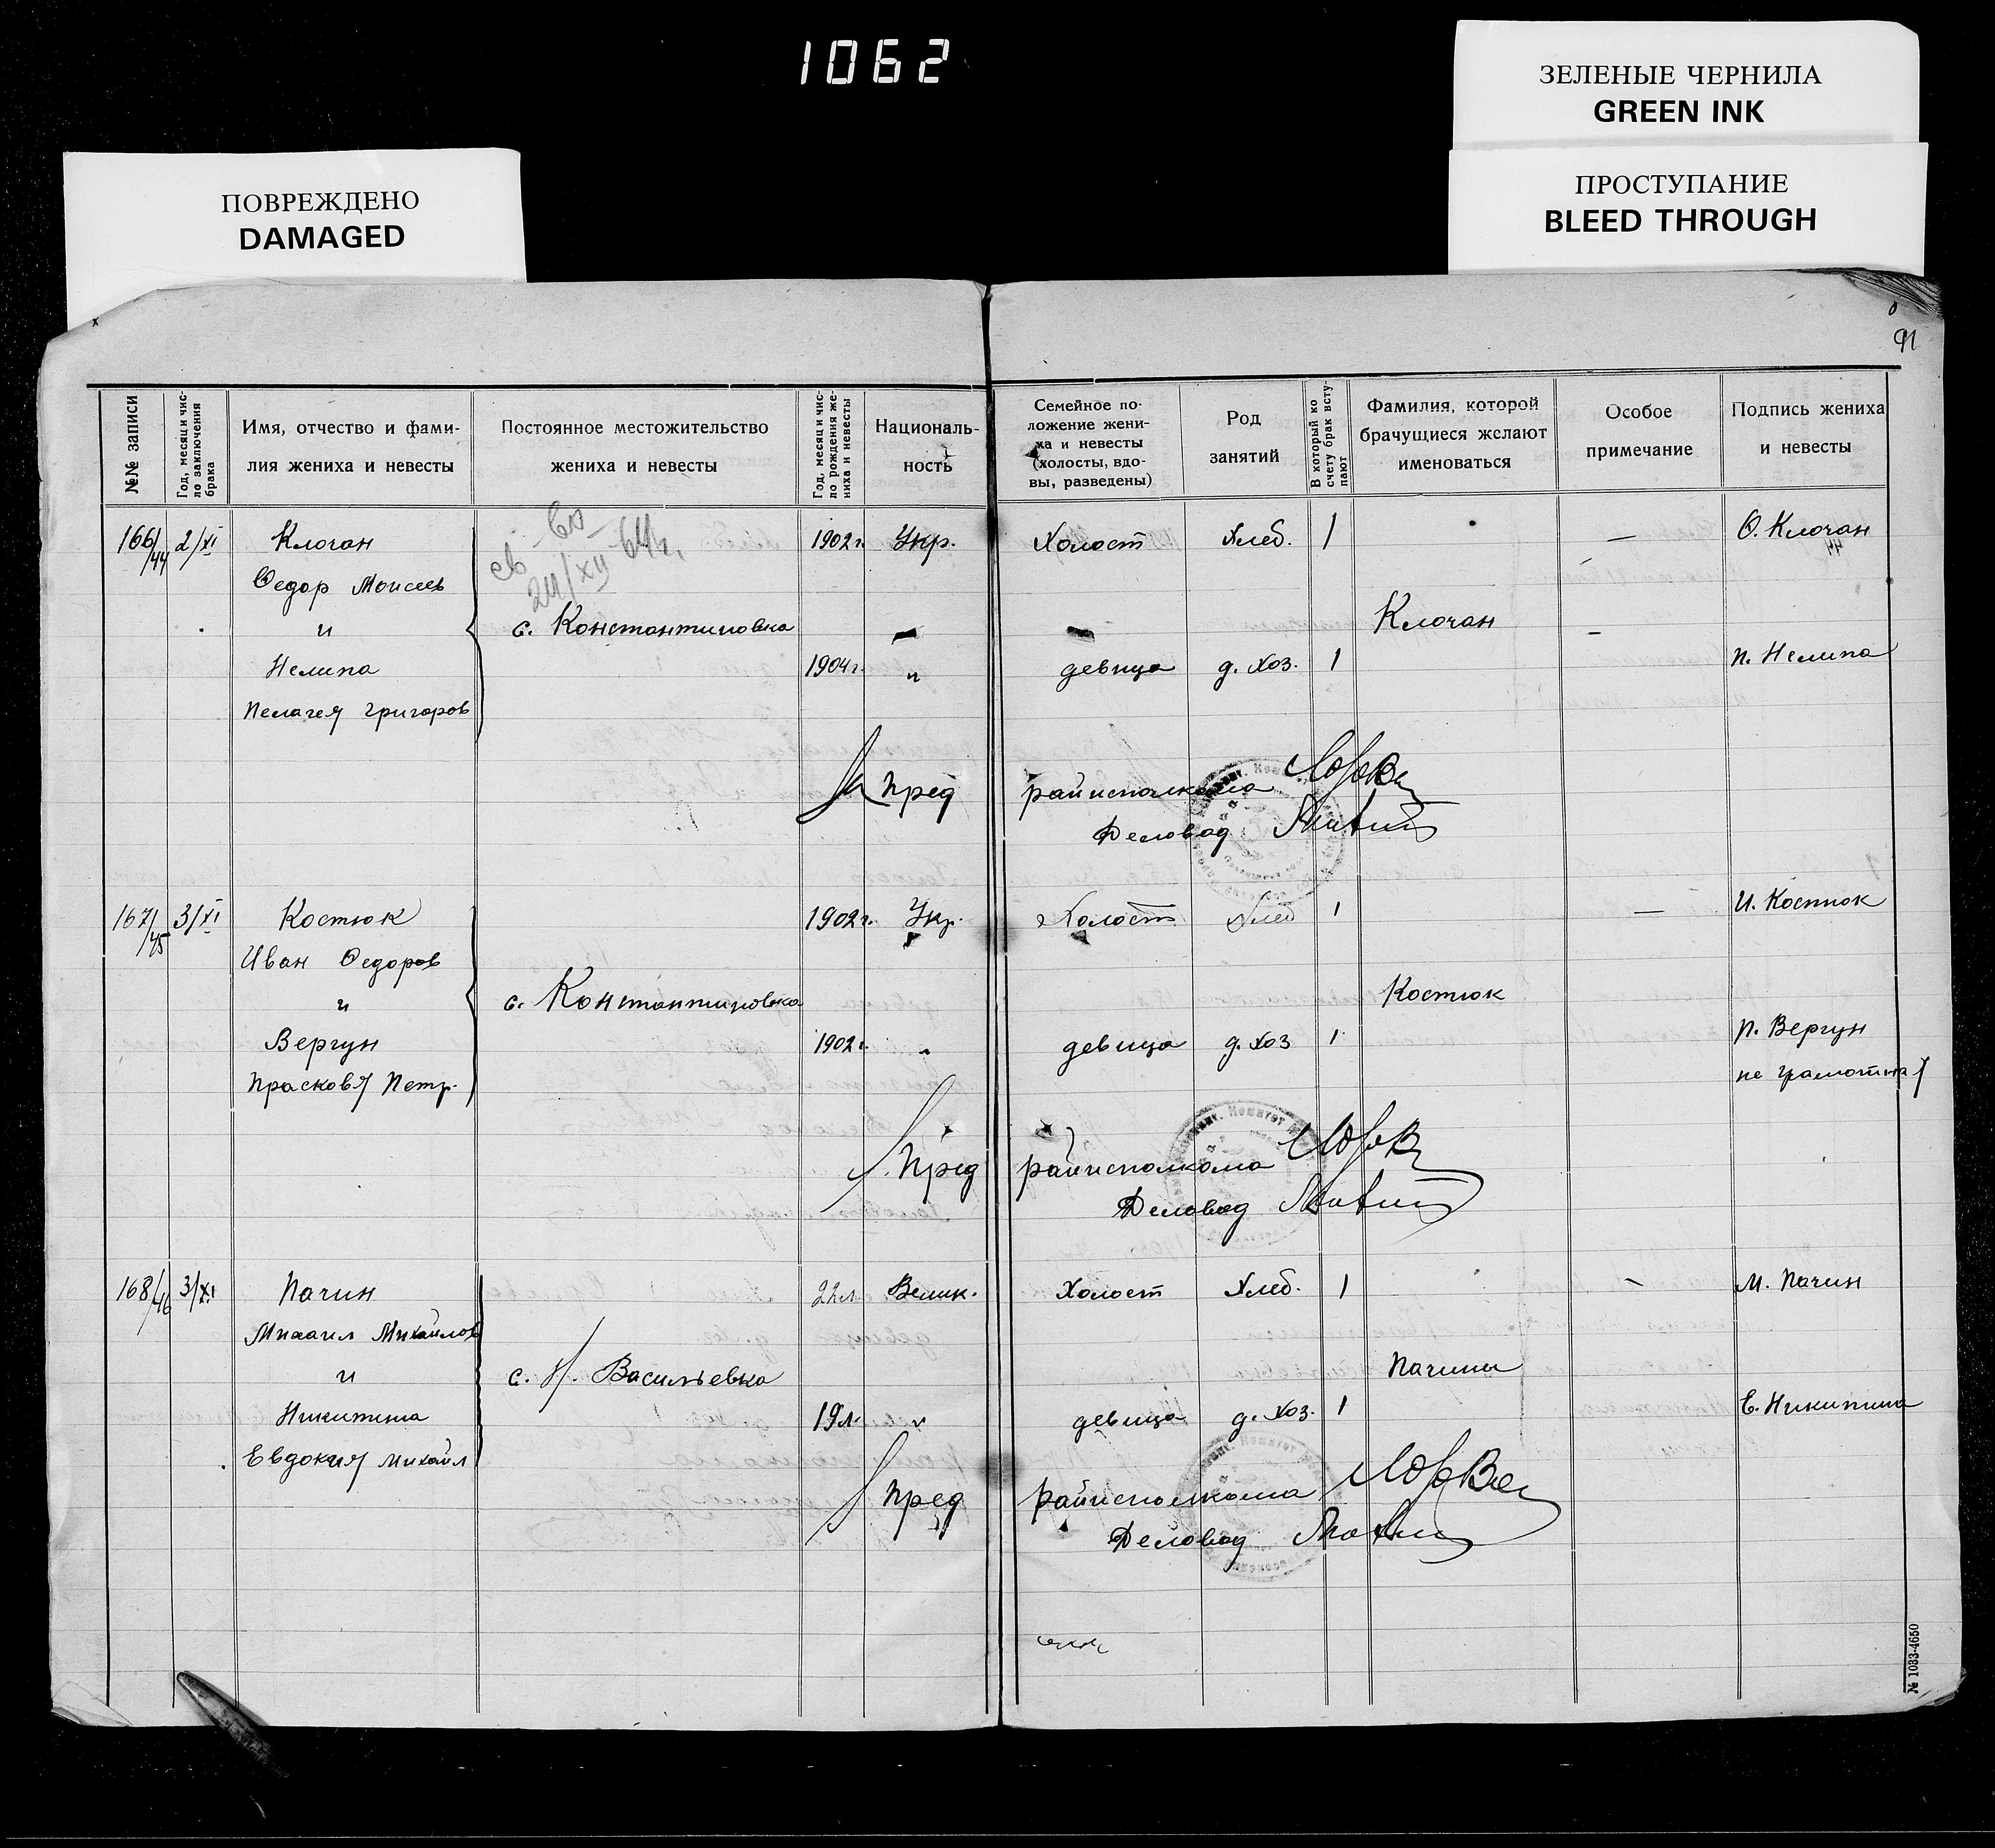 1062
ЗЕЛЕНЫЕ ЧЕРНИЛА
GREEN INK
ПРОСТУПАНИЕ
BLEED THROUGH
ПОВРЕЖДЕНО
DAMAGED
91
№№ записи
Год, месяц и чис-
ло заключения
брака
Имя, отчество и фами-
лия жениха и невесты
Постоянное местожительство
жениха и невесты
Год, месяц и чис-
ло рождения же-
ниха и невесты
Националь-
ность
Семейное по-
ложение жени-
ха и невесты
(холосты, вдо-
вы, разведены)
Род
занятий
В который ко
счету брак всту-
пают
Фамилия, которой
брачущиеся желают
именоваться
Особое
примечание
Подпись жениха
и невесты
166/44 2/XI Клочан 1902г. Укр. Холост Хлеб. 1 — О. Клочан
24/XII-64г.
Федор Моисеев
и с. Константиновка Клочан
Нелипа 1904г. " девица д. хоз. 1 П. Нелипа
Пелагея Григоров
Пред райисполкома
Деловод
167/45 3/XI Костюк 1902г. Укр. Холост Хлеб 1 — И. Костюк
Иван Федоров
и с. Константиновка Костюк
Вергун 1902г. " девица д. хоз 1 П. Вергун
Прасковя Петр. не грамотная
Пред райисполкома
Деловод
168/46 3/XI Пачин 22л. Велик. Холост Хлеб. 1 — М. Пачин
Михаил Михайлов
и с. Н. Васильевка Пачины
Никитина 19л. " девица д. хоз. 1 Е. Никитина
Евдокия Михайл
Пред райисполкома
Деловод
№ 1033-4650